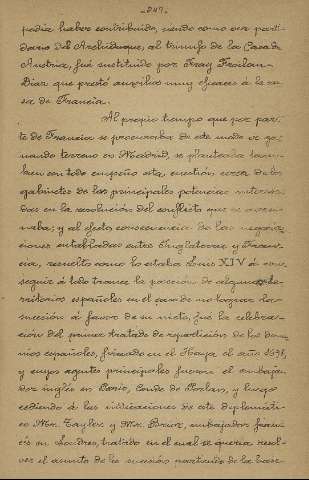 -247-
podía haber contribuido, siendo como era parti-
dario del Archiduque, al triunfo de la Casa de
Austria, fué sustituido por Fray Froilan
Diaz que prestó auxilios muy eficaces á la ca-
sa de Francia.
Al propio tiempo que por par-
te de Francia se procuraba de este modo ir ga-
nando terreno en Madrid, se planteaba tam-
bien con todo empeño esta cuestión cerca de los
gabinetes de las principales potencias interesa-
das en la resolución del conflicto que se aveci-
naba; y al efecto consecuencia de las negocia-
ciones entabladas entre Inglaterra y Fran-
cia, resuelto como lo estaba Louis XIV á con-
seguir á todo trance la posesión de algunos te-
rritorios españoles en el caso de no lograr la su-
cesión á favor de su nieto, fué la celebra-
ción del primer tratado de repartición de los domi-
nios españoles, firmado en el Haya el año 1698,
y cuyos agentes principales fueron el embaja-
dor inglés en Paris, Conde de Porlan, y luego
cediendo á las indicaciones de este diplomáti-
co Mr. Taylor y Mr. Brior, embajador fran-
cés en Londres, tratado en el cual se queria resol-
ver el asunto de la sucesión partiendo de la base